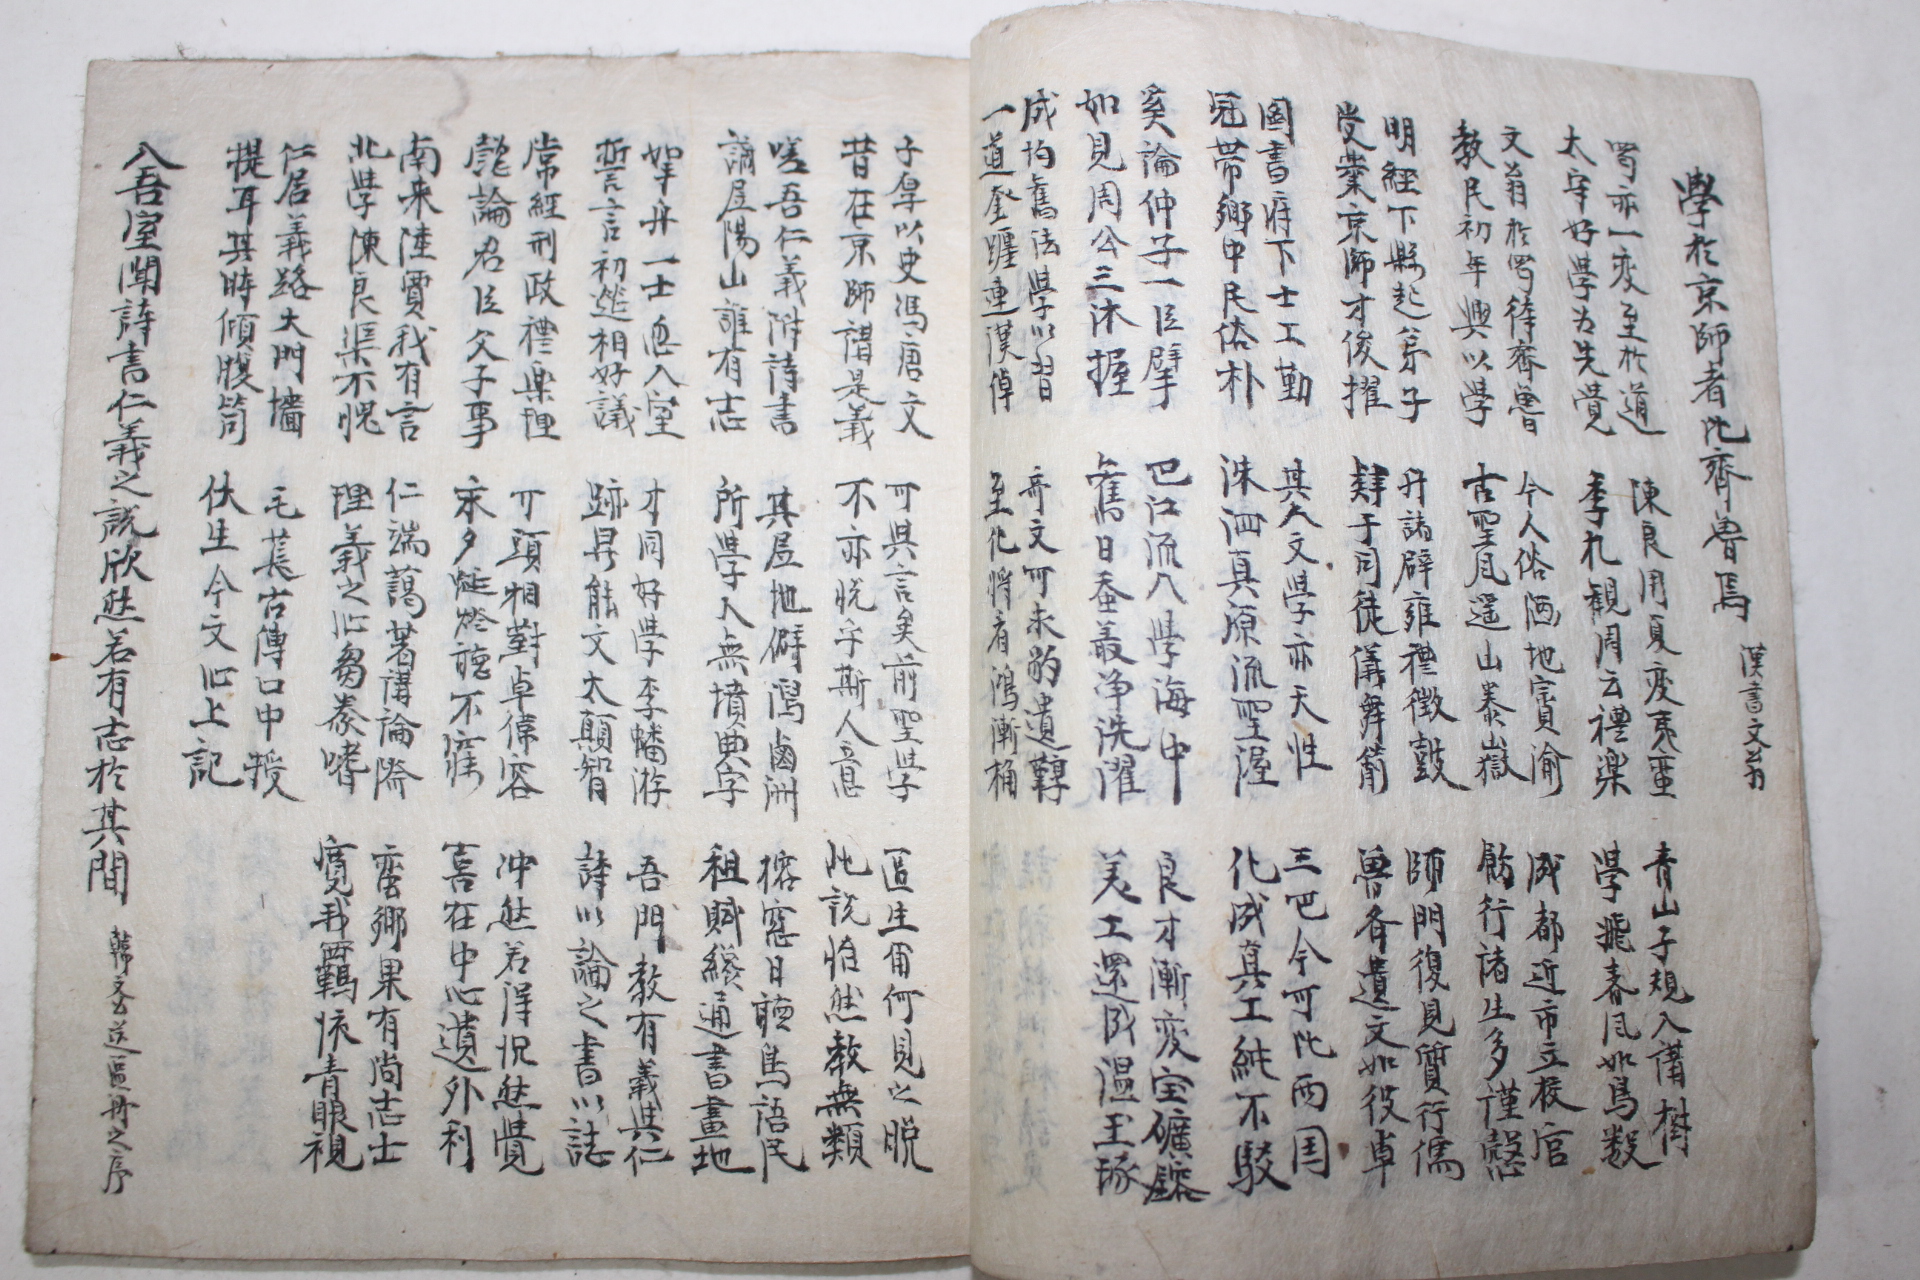 學於京師者比齊魯焉 漢書文翁
蜀亦一変至於道
太守好學为先覺
陳良用夏変夷蛮
季札観周云禮樂
青山子規入講樹
學飛春風如鳥數
文翁於蜀待齊魯
教民初年興以學
今人俗洒地賓渝
古聖風遥山泰嶽
成都近市立校官
飭行諸生多謹慤
明經下縣起弟子
受業京師才俊擢
升諸辟雍禮徴鼓
肄于同徒儀舞箾
師門復見質行儒
魯各遺文如役卓
圖書府下士工勤
冠帶鄉中民俗朴
其人文學亦天性
洙泗真源流聖渥
三巴今可比两周
化成真工純不駁
奚論仲子一臣擘
如見周公三沐握
巴江流入學海中
舊日蚕叢净洗濯
良才漸変宝礦鎔
美工還成温玉琢
成均舊法學以習
一道奎躔連漢倬
奇文可求豹遺鞟
至化将看鴻漸桷
子厚以史馮唐文
昔在京師謂是義
可與言矣前聖學
不亦悦乎斯人意
區生何見之脱
此說怡然教無類
嗟吾仁義附詩書
謫居陽山誰有志
其居地僻瀉鹵洲
所學人無墳典字
榕窓日聴鳥語民
租賦纔通書畫地
挐舟一士忽入室
誓言初逝相好議
才同好學李蟠游
跡昇能文太顛智
吾門教有義與仁
詩以論之書以誌
常經刑政禮樂理
論君臣父子事
可頭相對卓偉容
永夕燈聴不寐
冲然若得怳然覺
喜在中心遺外利
南来陸賈我有言
北學陳良渠不愧
仁端藹若講論際
理義之心芻豢嗜
蛮鄉果有尚志士
寛我羈懐青眼視
仁居義路大門墻
提耳其時傾腹笥
毛萇古傳口中授
伏生今文心上記
入吾室聞詩書仁義之說欣然若有志於其間 韓文公送區冊之序